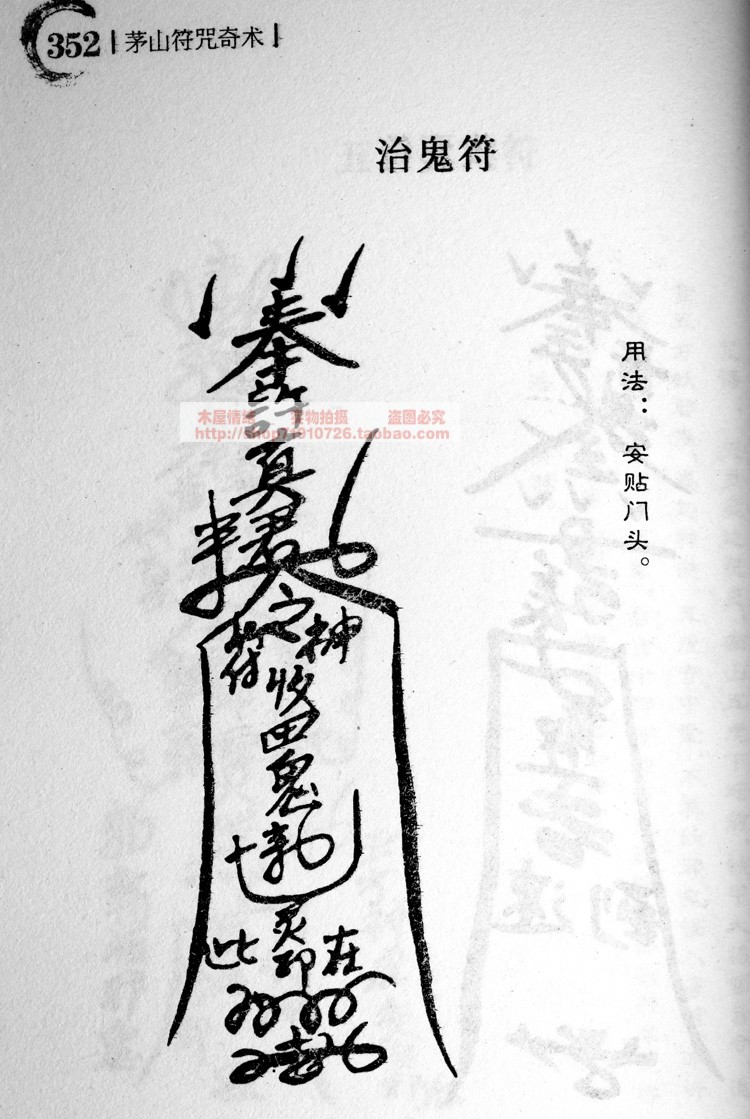 352 | 茅山符咒奇术 |
治鬼符
用法： 安贴门头。
奉
许
真
君
之
神
收
田
鬼
灵
此
印
在
木屋情缘 实物拍摄 盗图必究
http://shop71910726.taobao.com